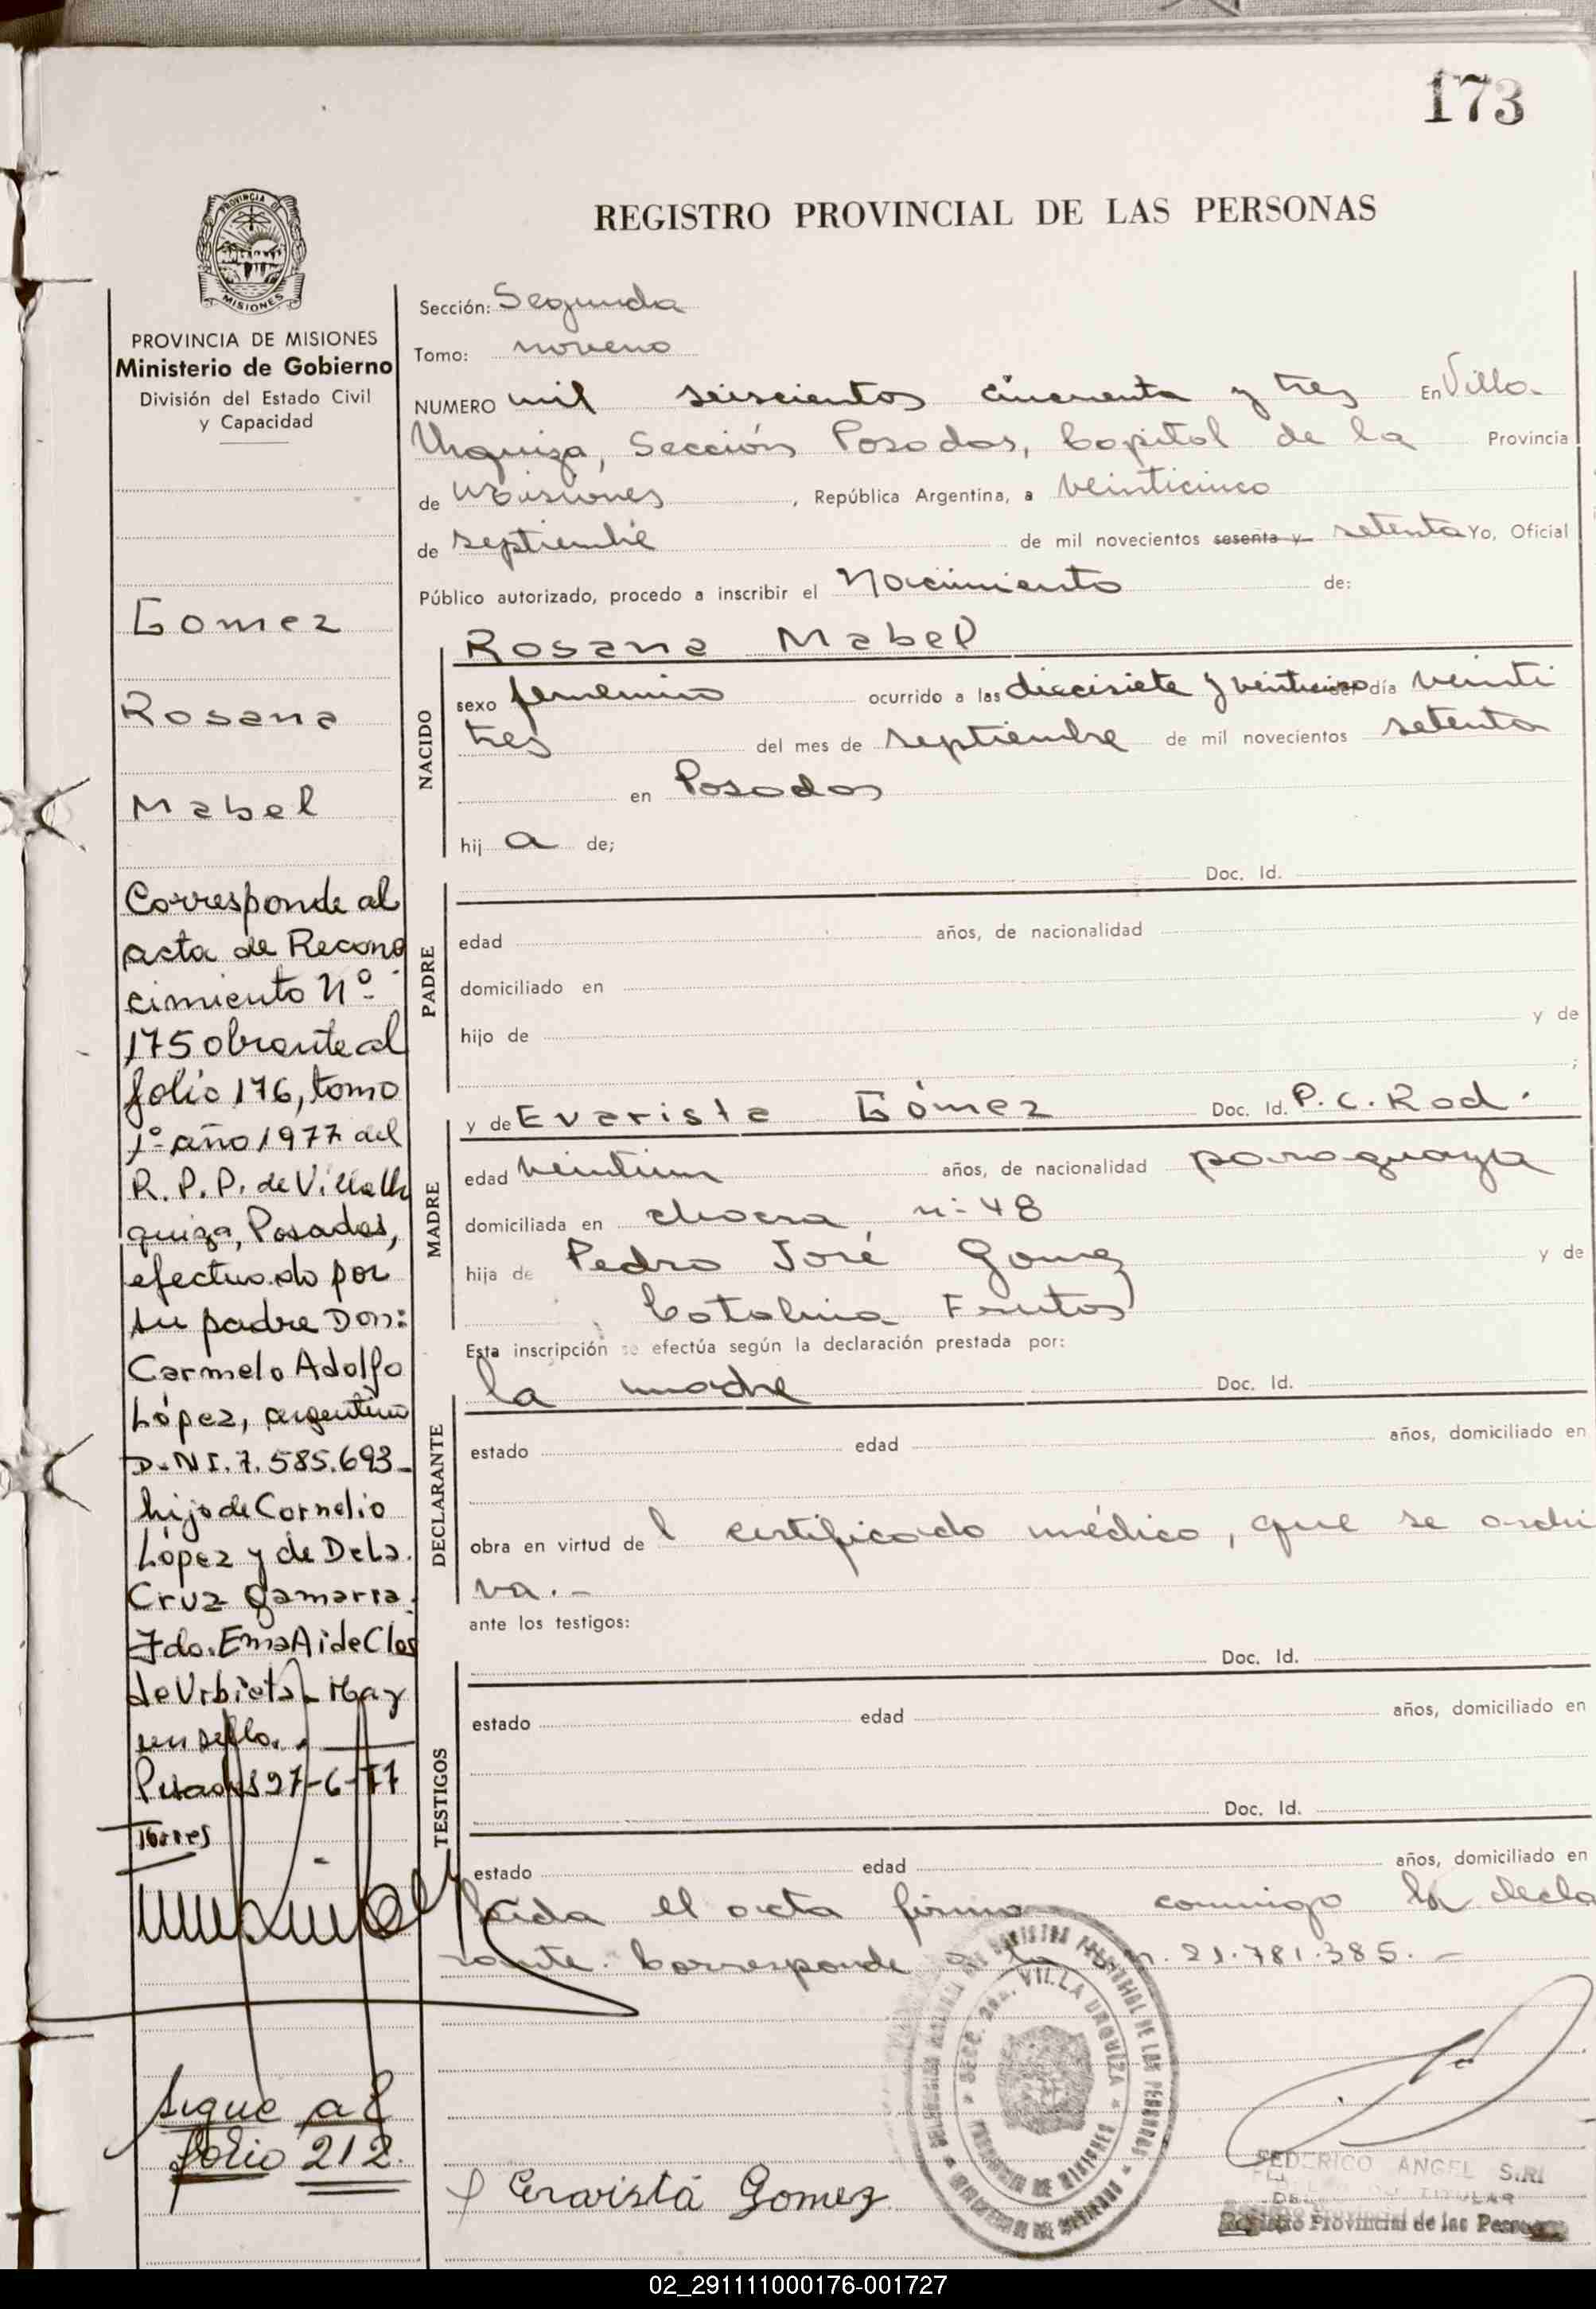 173
REGISTRO PROVINCIAL DE LAS PERSONAS
PROVINCIA DE
MISIONES
PROVINCIA DE MISIONES
Ministerio de Gobierno
División del Estado Civil
y Capacidad
Gomez
Rosana
Mabel
Corresponde al
acta de Recono
cimiento Nº
175 obrante al
folio 176, tomo
1º año 1977 del
R. P. P. de Villa Ur
quiza, Posadas,
efectuado por
su padre Don:
Carmelo Adolfo
López, argentino
D.N.I. 7.585.693_
hijo de Cornelio
López y de De La
Cruz Gamarra.
Fdo. Ema Aide Clos
de Urbieta. Hay
un sello.
Posadas 27-6-77
Torres
Sigue al
folio 212.
Sección: Segunda
Tomo: noveno
NUMERO mil seiscientos cincuenta y tres En Villa
Urquiza, Sección Posadas, Capital de la Provincia
de Misiones, República Argentina, a veinticinco
de septiembre de mil novecientos sesenta y setenta Yo, Oficial
Público autorizado, procedo a inscribir el Nacimiento de:
NACIDO
Rosana Mabel
sexo femenino ocurrido a las diecisiete y veinticinco día veinti
tres del mes de septiembre de mil novecientos setenta
en Posadas
hij a de;
PADRE
Doc. Id.
edad años, de nacionalidad
domiciliado en
hijo de y de
;
MADRE
y de Evarista Gómez Doc. Id. P. C. Rod.
edad veintiun años, de nacionalidad paraguaya
domiciliada en chacra n: 48
hija de Pedro José Gomez y de
Catalina Frutos
Esta inscripción se efectúa según la declaración prestada por:
DECLARANTE
la madre Doc. Id.
estado edad años, domiciliado en
obra en virtud de l certificado médico, que se archi
va.-
ante los testigos:
TESTIGOS
Doc. Id.
estado edad años, domiciliado en
Doc. Id.
estado edad años, domiciliado en
Leida el acta firma conmigo la decla
rante. Corresponde a la m. 21.781.385. -
SECC. 2da. VILLA URQUIZA
PROVINCIA DE MISIONES
Evarista Gomez
FEDERICO ANGEL SIRI
Registro Provincial de las Personas
02_291111000176-001727